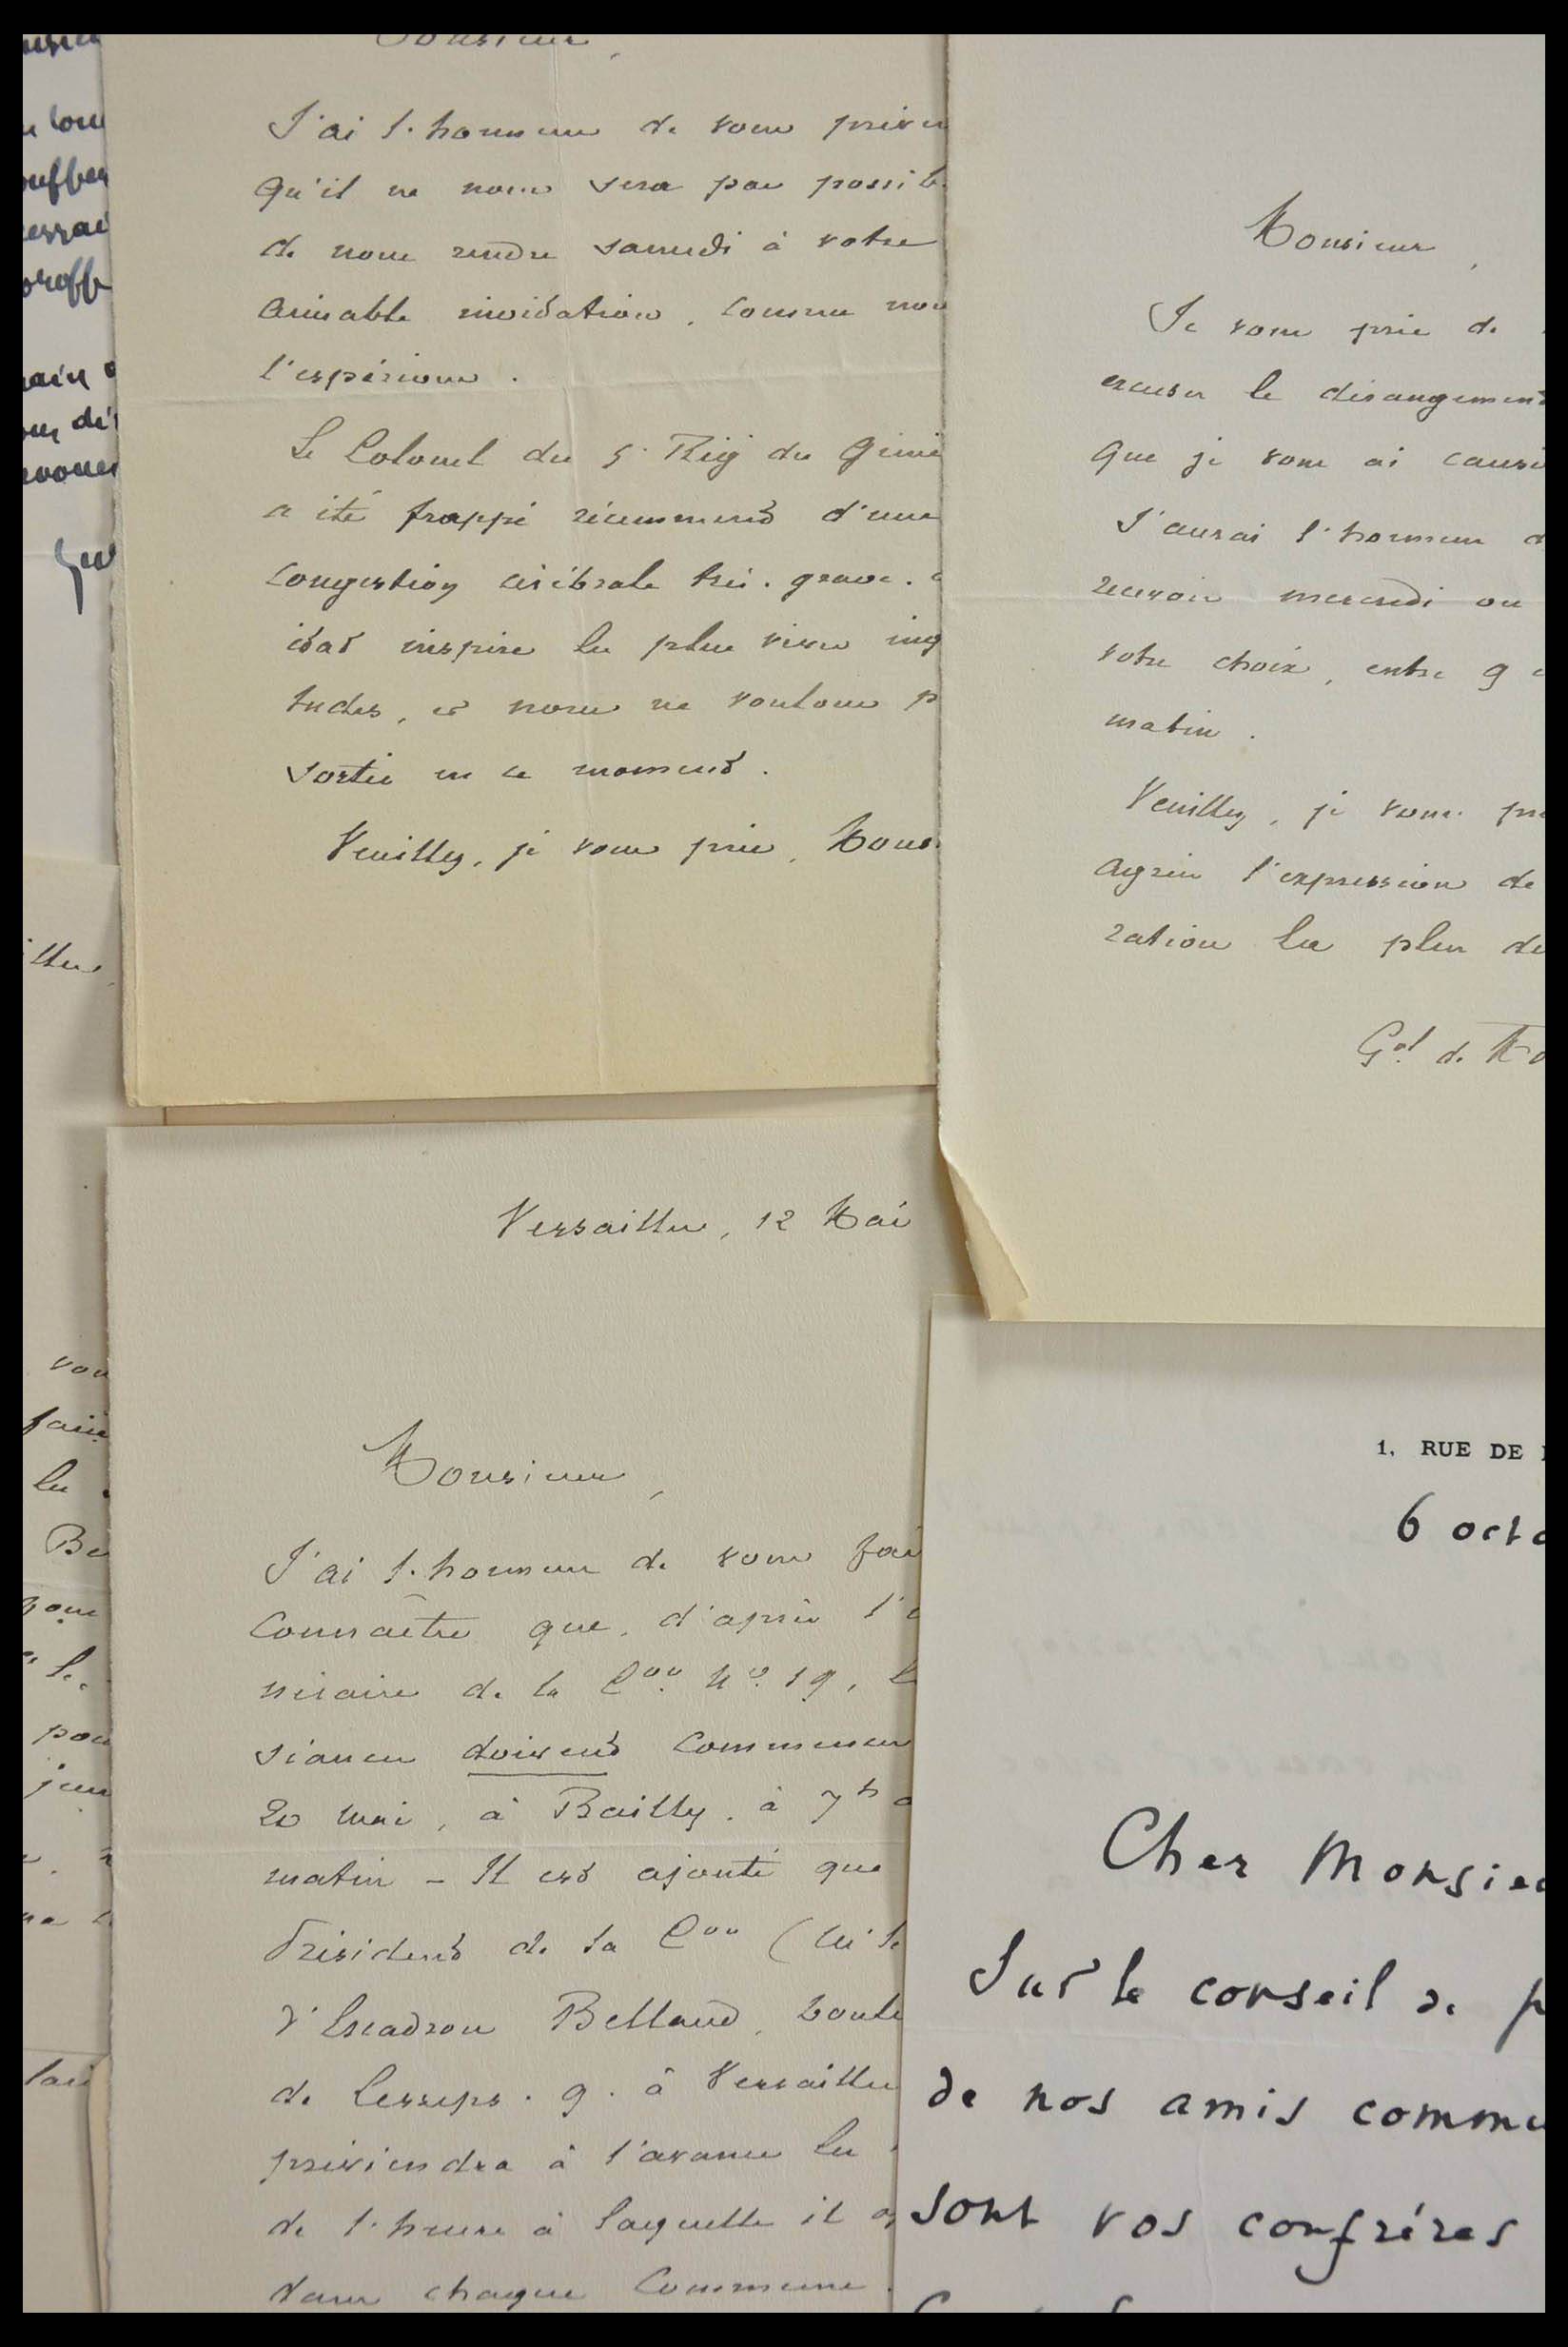 Monsieur,
J'ai l'honneur de vous préven
qu'il ne nous sera pas possibl
de nous rendre samedi à votre
aimable invitation, comme nou
l'espérions.
Le Colonel du 5e Rég du Géni
a été frappé récemment d'une
congestion cérébrale très grave.
état inspire les plus vives inq
tudes, et nous ne voulons p
sortir en ce moment.
Veuillez, je vous prie, Mons
Monsieur,
Je vous prie de
excuser le dérangement
que je vous ai causé
J'aurai l'honneur d
recevoir mercredi ou
votre choix, entre 9
matin.
Veuillez, je vous pr
agréer l'expression de
ration la plus di
Gal de Mo
Versailles, 12 Mai
Monsieur,
J'ai l'honneur de vous fai
connaître que, d'après l'i
néraire de la Con No 19, l
séances doivent commencer
20 mai, à Bailly, à 7h
matin – Il est ajouté que
Président de la Con (
d'Escadron Bellaud, boule
de Lesseps. 9. à Versailles
préviendra à l'avance les
de l'heure à laquelle il o
dans chaque Commune.
1, RUE DE
6 octo
Cher Monsieu
Sur le conseil de p
de nos amis commu
sont vos confrères
uffen
essai
ain
dés
illes,
vou
faire
les
Be
pou